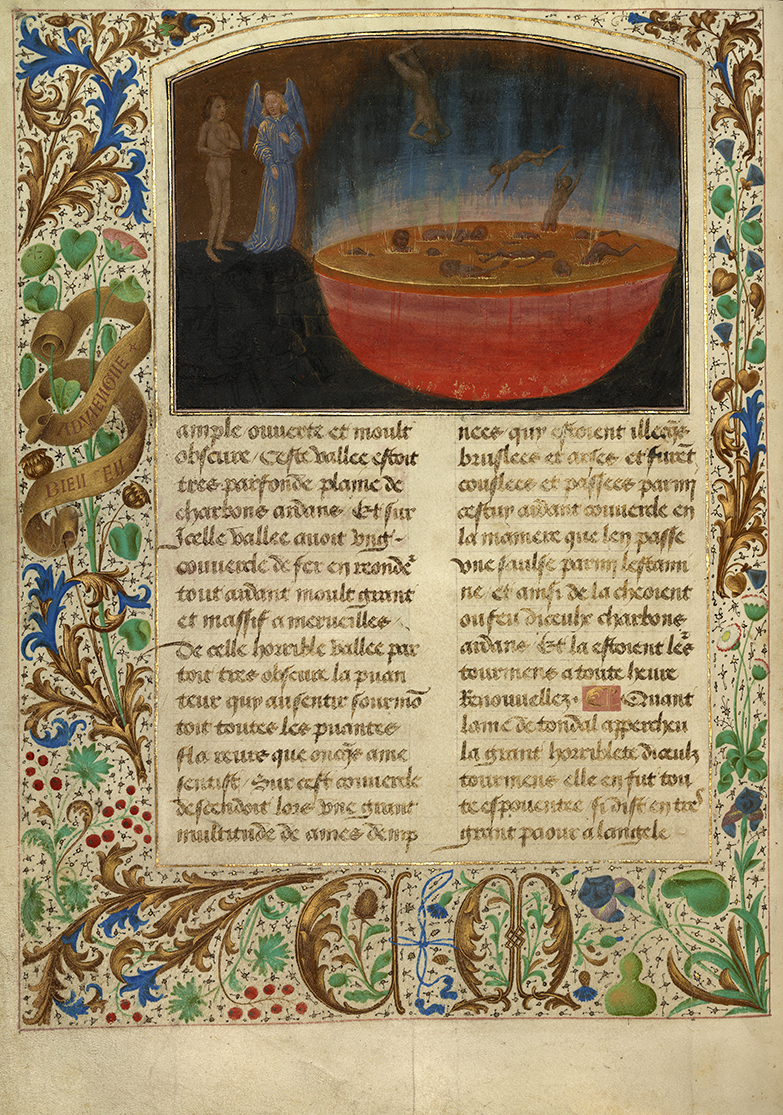 ample ouverte et moult
obscure / Ceste vallee estoit
tres parfonde plaine de
charbons ardans Et sur
Icelle vallee avoit vng
couvercle de fer en reonde᷒
tout ardant moult grant
et massif a merveilles
De celle horrible vallee par
toit tres obscure la puan
teur quy au sentir sourmõ
toit toutes les puantes
flareurs que oncq̃s ame
sentist / Sur cest couvercle
descendoit lors vne grant
multitude de ames demp
nees quy estoient illecq̃s
bruslees et arses et furent
coullees et passees parmi
cestuy ardant couvercle en
la maniere que len passe
vne saulse parmi lestami
ne et ainsi de la cheoient
ou feu diceulx charbons
ardans Et la estoient leˢ
tourmens a toute heure
Renouvellez. Quant
lame de tondal apperceu
la grant horriblete diceulz
tourmens elle en fut tou
te espouentee si dist en treˢ
grant paour a langele
BIEN EN
C M